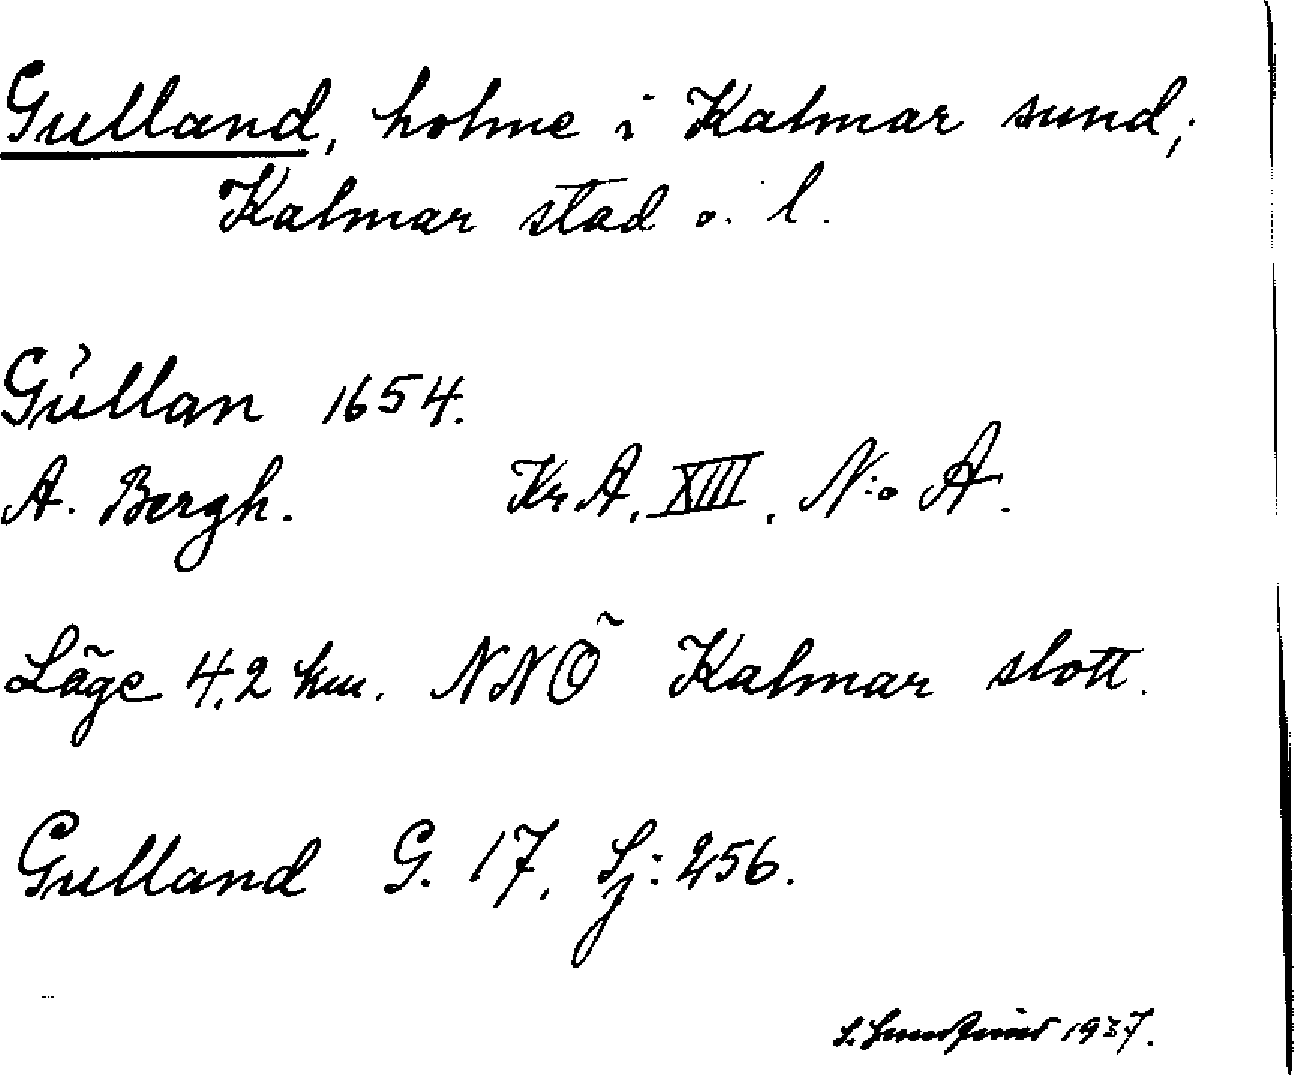 Gulland, holme i Kalmar sund;
Kalmar stad o. l.
Gŭllan 1654.
A. Bergh. Kr.A. XIII. N:o A.
Läge 4,2 km. NNÖ Kalmar slott.
Gulland G. 17, Sj: 256.
1937.